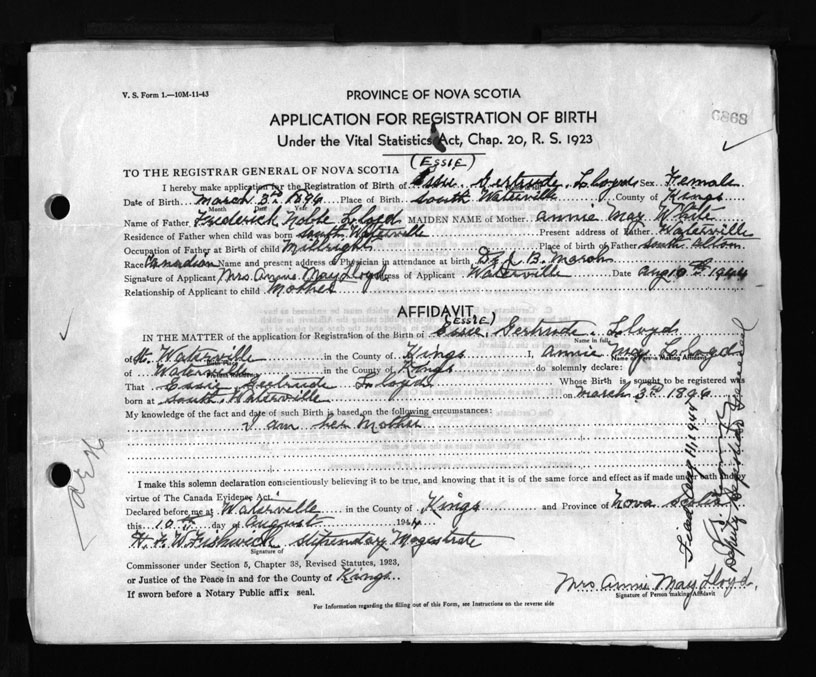 V. S. Form 1.—10M-11-43
PROVINCE OF NOVA SCOTIA
APPLICATION FOR REGISTRATION OF BIRTH
6868
Under the Vital Statistics Act, Chap. 20, R. S. 1923
(ESSIE)
TO THE REGISTRAR GENERAL OF NOVA SCOTIA
I hereby make application for the Registration of Birth of Essie Gertrude Lloyd Sex Female
Date of Birth March 3rd 1896 Place of Birth South Waterville County of Kings
Month Date Year
Name of Father Frederick Noble Lloyd MAIDEN NAME of Mother Annie May White
Residence of Father when child was born South Waterville Present address of Father Waterville
Occupation of Father at Birth of child Millright Place of Birth of Father South Alton
Race Canadian Name and present address of Physician in attendance at birth Dr J. B. March
Signature of Applicant Mrs. Annie May Lloyd Address of Applicant Waterville Date Aug 10th 1944
Relationship of Applicant to child Mother
AFFIDAVIT
(ESSIE)
IN THE MATTER of the application for Registration of the Birth of Essie Gertrude Lloyd
Name in full
of St. Waterville in the County of Kings I, Annie May Lloyd
Name of Person making Affidavit
of Waterville in the County of Kings do solemnly declare:
That Essie Gertrude Lloyd Whose Birth is sought to be registered was
born at South Waterville on March 3rd 1896
My knowledge of the fact and date of such Birth is based on the following circumstances:
I am her Mother
I make this solemn declaration conscientiously believing it to be true, and knowing that it is of the same force and effect as if made under oath and
virtue of The Canada Evidence Act.
Declared before me at Waterville in the County of Kings and Province of Nova Scotia
this 10th day of August 1944
H. F. W. Fishwick Stipendiary Magistrate
Signature of
Commissioner under Section 5, Chapter 38, Revised Statutes, 1923,
or Justice of the Peace in and for the County of Kings
If sworn before a Notary Public affix seal.
Mrs Annie May Lloyd
Signature of Person making Affidavit
For Information regarding the filling out of this Form, see Instructions on the reverse side
Aug 11 1944
Deputy Registrar General